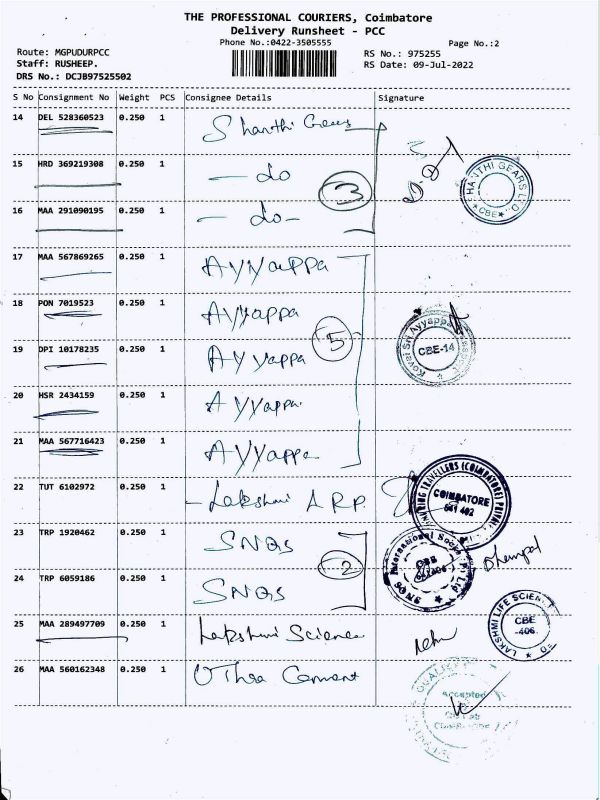 THE PROFESSIONAL COURIERS, Coimbatore
Delivery Runsheet - PCC
Phone No.:0422-3505555
Page No.:2
Route: MGPUDURPCC
RS No.: 975255
Staff: RUSHEEP.
RS Date: 09-Jul-2022
DRS No.: DCJB97525502
S No Consignment No Weight PCS Consignee Details Signature
14 DEL 528360523 0.250 1 Shanthi Gears
15 HRD 369219308 0.250 1 - do
3
HANTHI GEARS LTD
*CBE*
16 MAA 291090195 0.250 1 - do-
17 MAA 567869265 0.250 1 Ayyappa
18 PON 7019523 0.250 1 Ayyappa
5
Kovai Sri Ayyappa
CBE-14
19 DPI 10178235 0.250 1 Ayyappa
20 HSR 2434159 0.250 1 Ayyappa
21 MAA 567716423 0.250 1 Ayyappa
22 TUT 6102972 0.250 1 - Lakshmi A R P.
TRAVELLERS (COIMBATORE)
COIMBATORE
641 402
23 TRP 1920462 0.250 1 SNQS
2
SNQS International Socks Pvt Ltd
24 TRP 6059186 0.250 1 SNQS
25 MAA 289497709 0.250 1 Lakshmi Science
LAKSHMI LIFE SCIEN
CBE
-406.
26 MAA 560162348 0.250 1 UThra Cement
Accepted